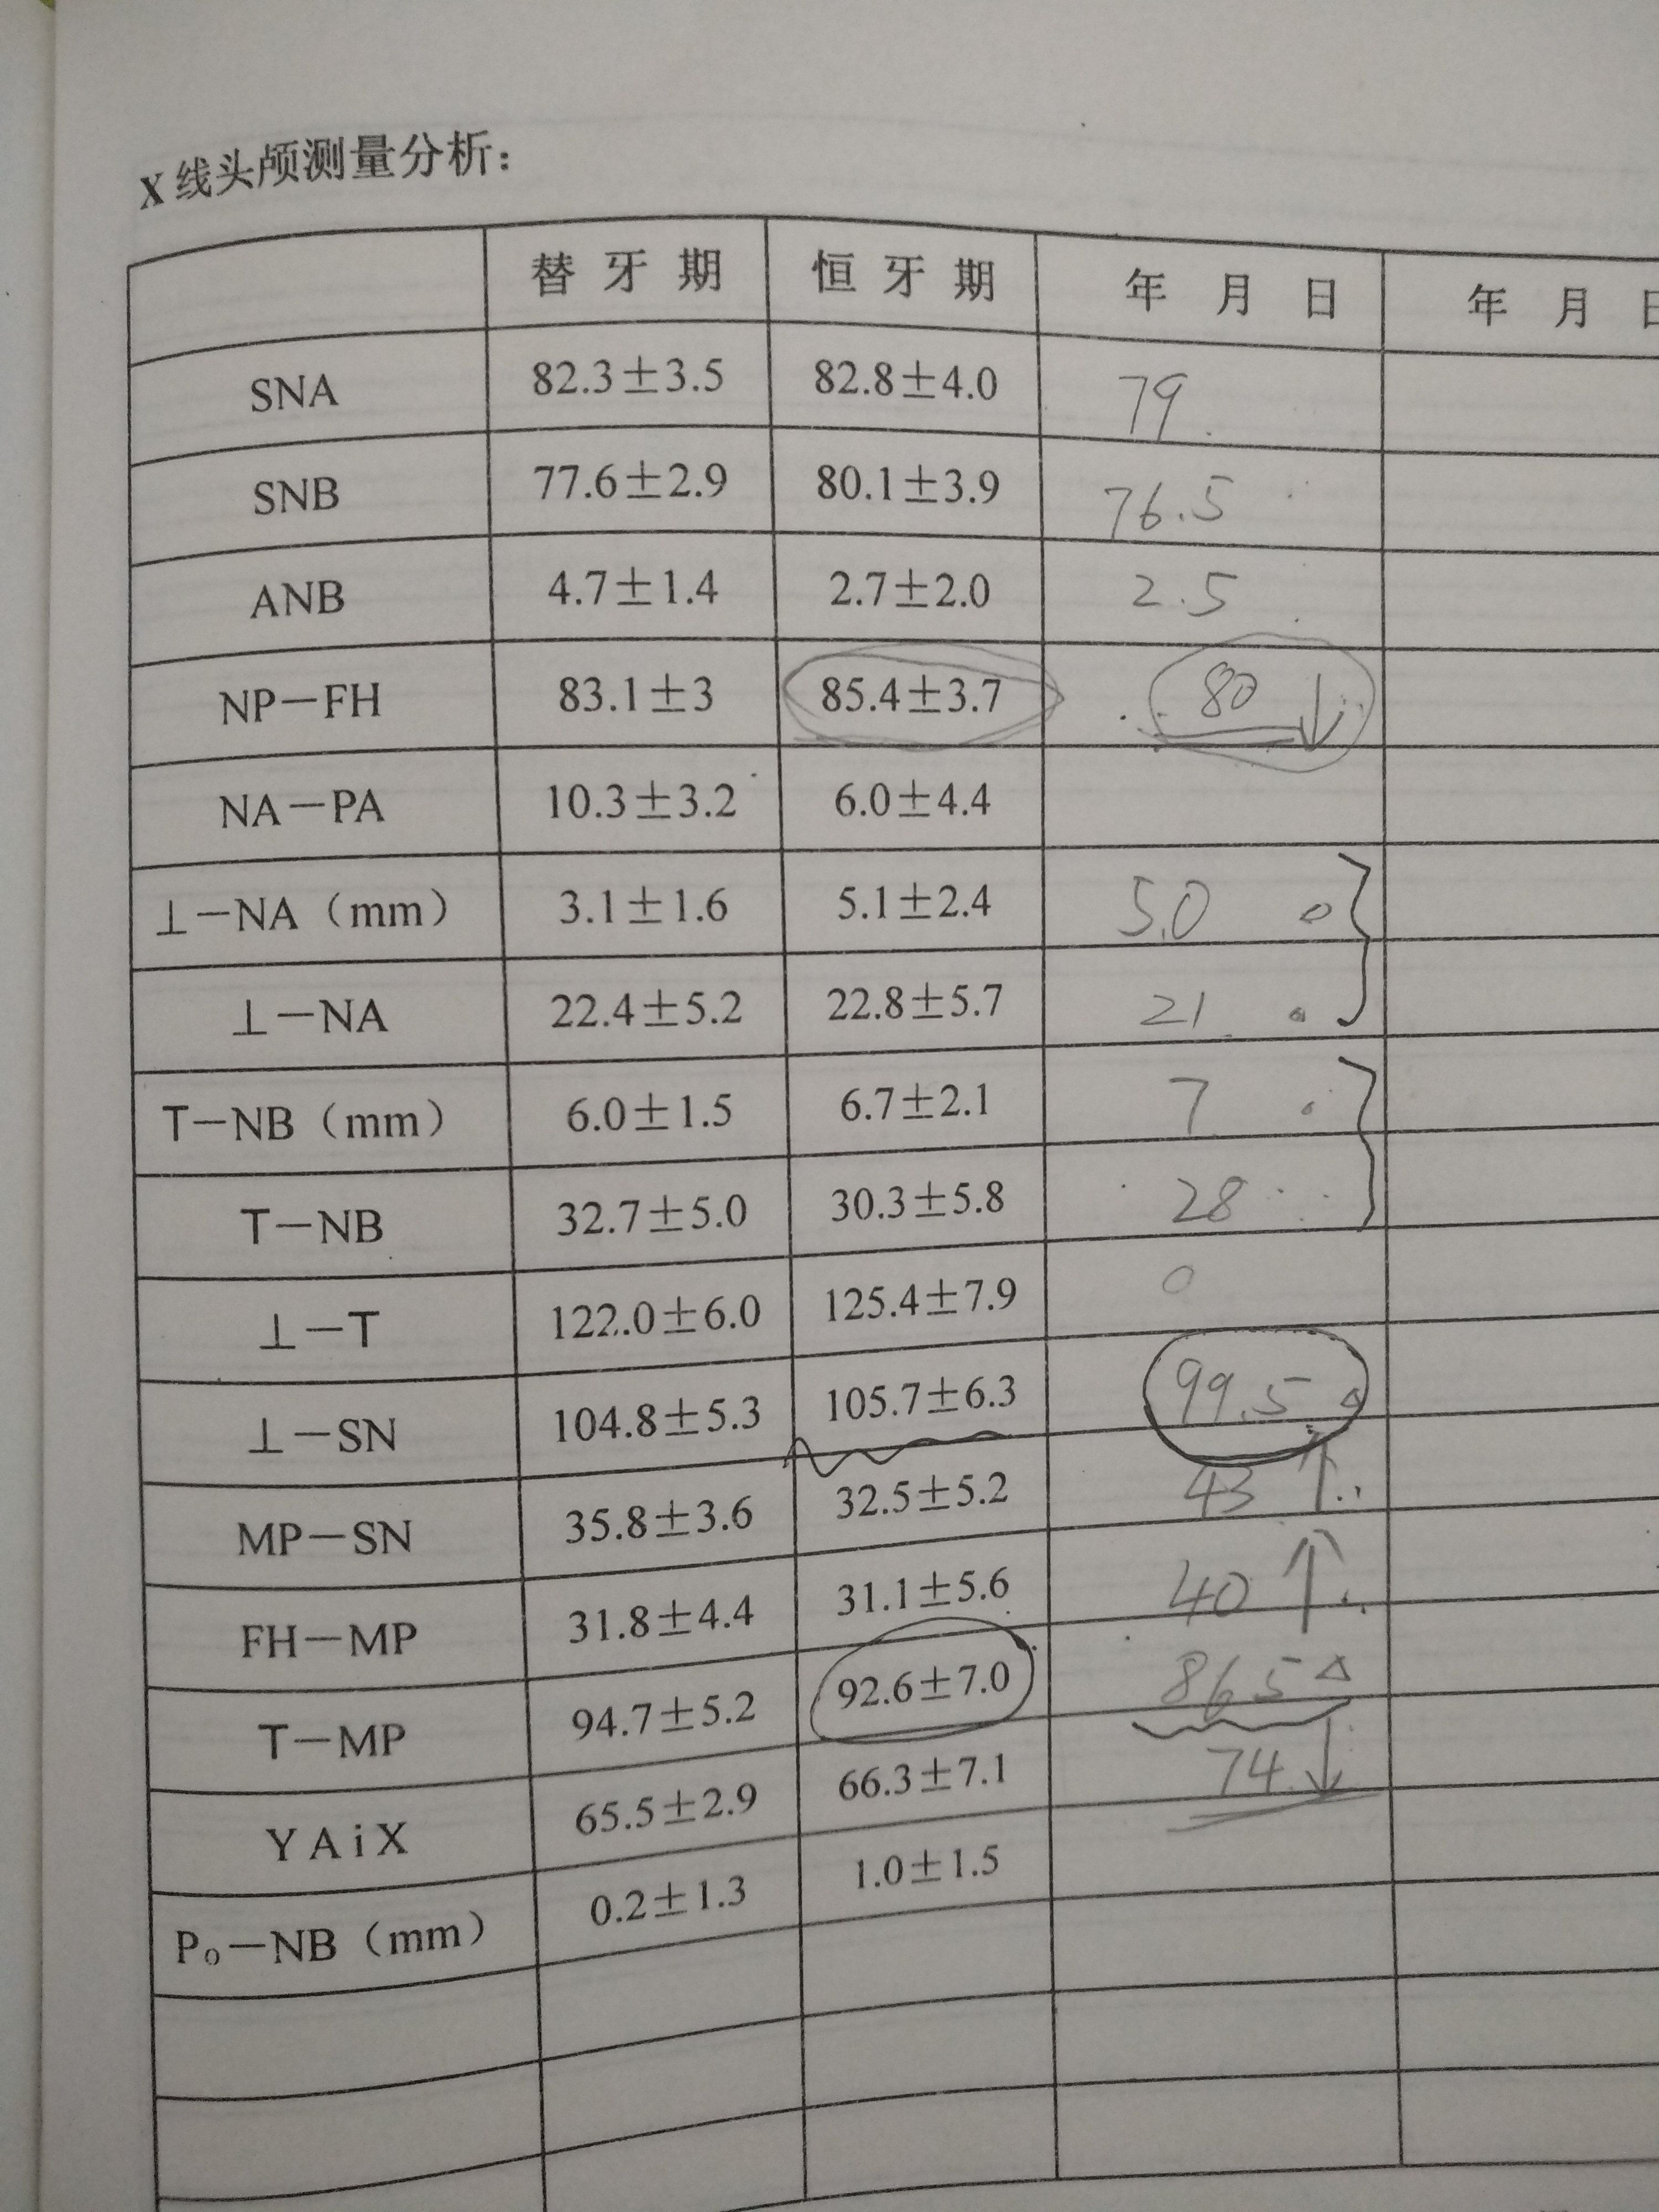 X线头颅测量分析：
替牙期 恒牙期 年 月 日 年 月 日
SNA 82.3±3.5 82.8±4.0 79.
SNB 77.6±2.9 80.1±3.9 76.5
ANB 4.7±1.4 2.7±2.0 2.5
NP－FH 83.1±3 85.4±3.7 80 ↓
NA－PA 10.3±3.2 6.0±4.4
⊥－NA（mm） 3.1±1.6 5.1±2.4 5.0
⊥－NA 22.4±5.2 22.8±5.7 21
T－NB（mm） 6.0±1.5 6.7±2.1 7
T－NB 32.7±5.0 30.3±5.8 28
⊥－T 122.0±6.0 125.4±7.9 0
⊥－SN 104.8±5.3 105.7±6.3 99.5
MP－SN 35.8±3.6 32.5±5.2 43 ↑
FH－MP 31.8±4.4 31.1±5.6 40 ↑
T－MP 94.7±5.2 92.6±7.0 86.5 △
YAiX 65.5±2.9 66.3±7.1 74 ↓
Po－NB（mm） 0.2±1.3 1.0±1.5